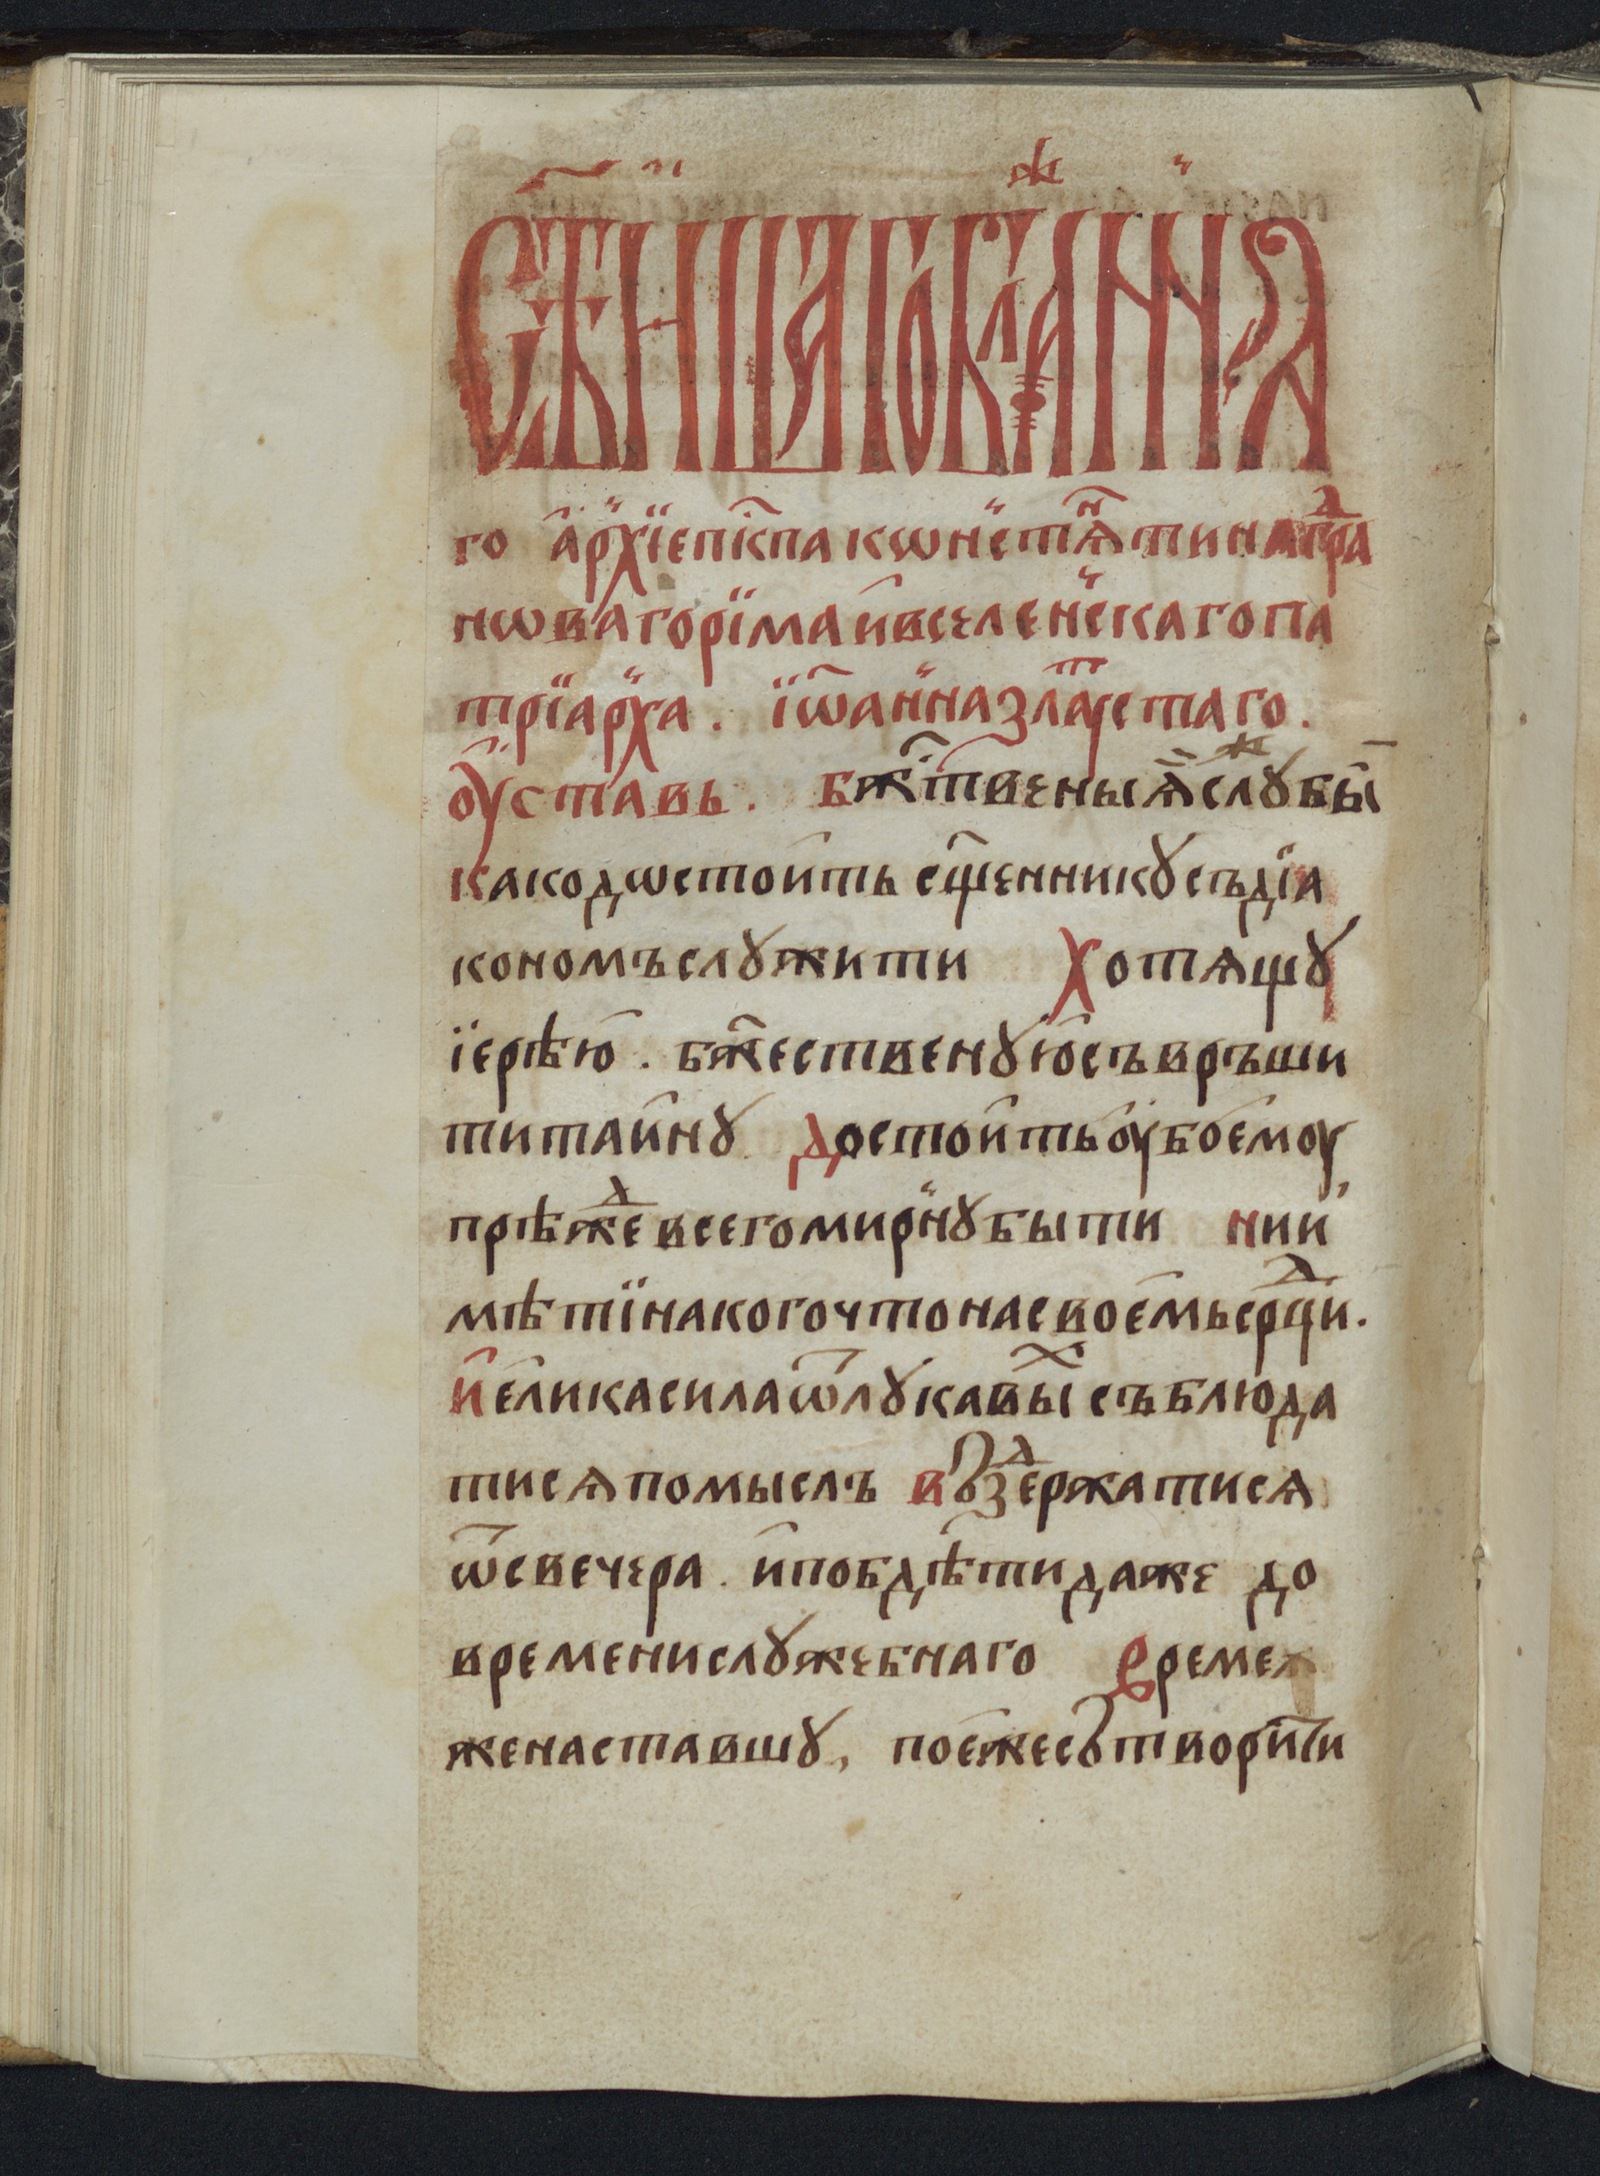 СТ҃ѢЙШАГОБЛАⷤННА
го а҆рхїеп҇кпа кѡнстѧⷩтинаⷣгра
нѡвагорїма и҆вселенскагопа
трїарха . їѡ҆анназлаⷮꙋстаго .
оу҆ставь . бж҇твеныѧ҆слꙋⷤбы
какодѡстоить сщ҃енникꙋсъдїа
кономъслꙋжити Хотѧщꙋ
їерѣю . бж҃ественꙋюсъвръши
титаинꙋ достоитьоубоемоу
прѣⷣжевсегомирнꙋбыти нии
мѣтїнакогочтонасвоемьсрⷣци .
и҆ еликасилаѿлꙋкавыⷯ съблюда
тисѧпомыслъ въꙁⷣержатисѧ
ѿсвечера . ипобдѣтидаже до
временислꙋжебнаго времен
женаставшꙋ, поежесътворити